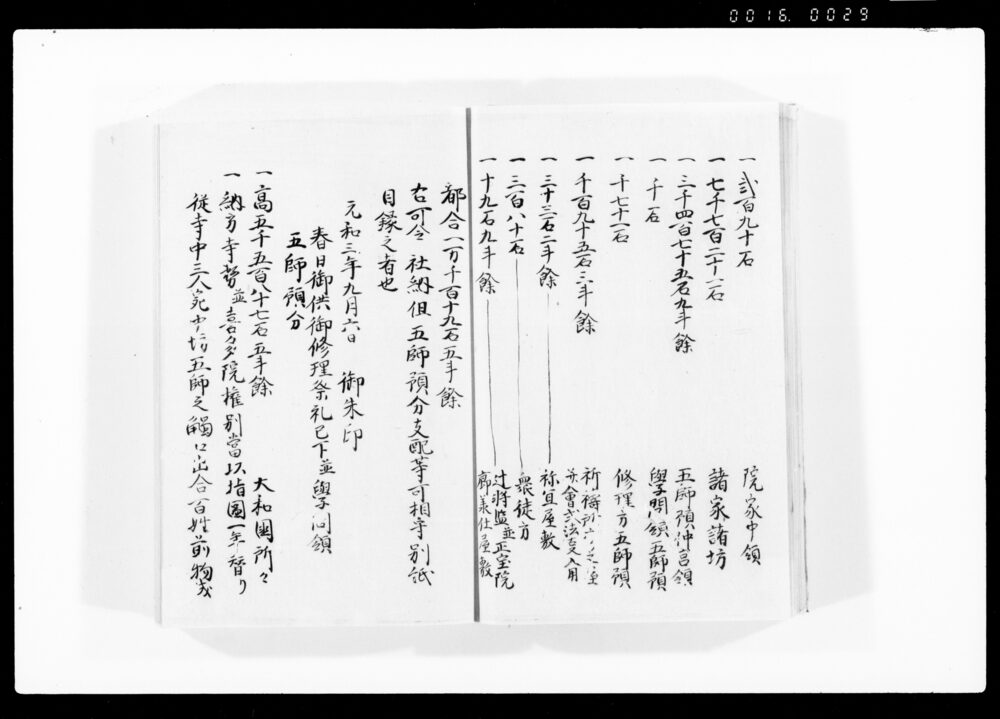 0016. 0029
一 弐百九十石 院家中領
一 七千七百二十一石 諸家諸坊
一 三千四百七十五石九斗餘 五師預仲𠮷領
一 千石 學問領五師預
一 千七十一石 修理方五師預
一 千百九十五石三斗餘 祈禱所
并會式法支入用
一 三十三石二斗餘 祢宜屋敷
一 三百八十石 衆徒方
一 十九石九斗餘 辻將監並正宝院
廊義仕屋敷
都合一万千百十九石五斗餘
右可令社納但五師預分支配等可相守別紙
目録之者也
元和三年九月六日 御朱印
春日御供御修理祭礼已下並學问領
五師預分
一 高五千五百八十七石五斗餘 大和國所々
一 納方寺勢並喜多院權別當以指圖一年替り
従寺中三人宛中坊五師之觸口出合百姓前物成